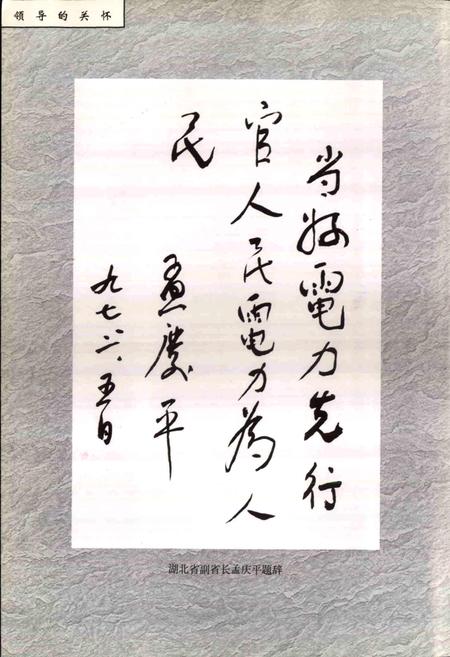 领导的关怀
当好電力先行
官人民電力為人
民
孟庆平
九七、六、五日
湖北省副省长孟庆平题辞